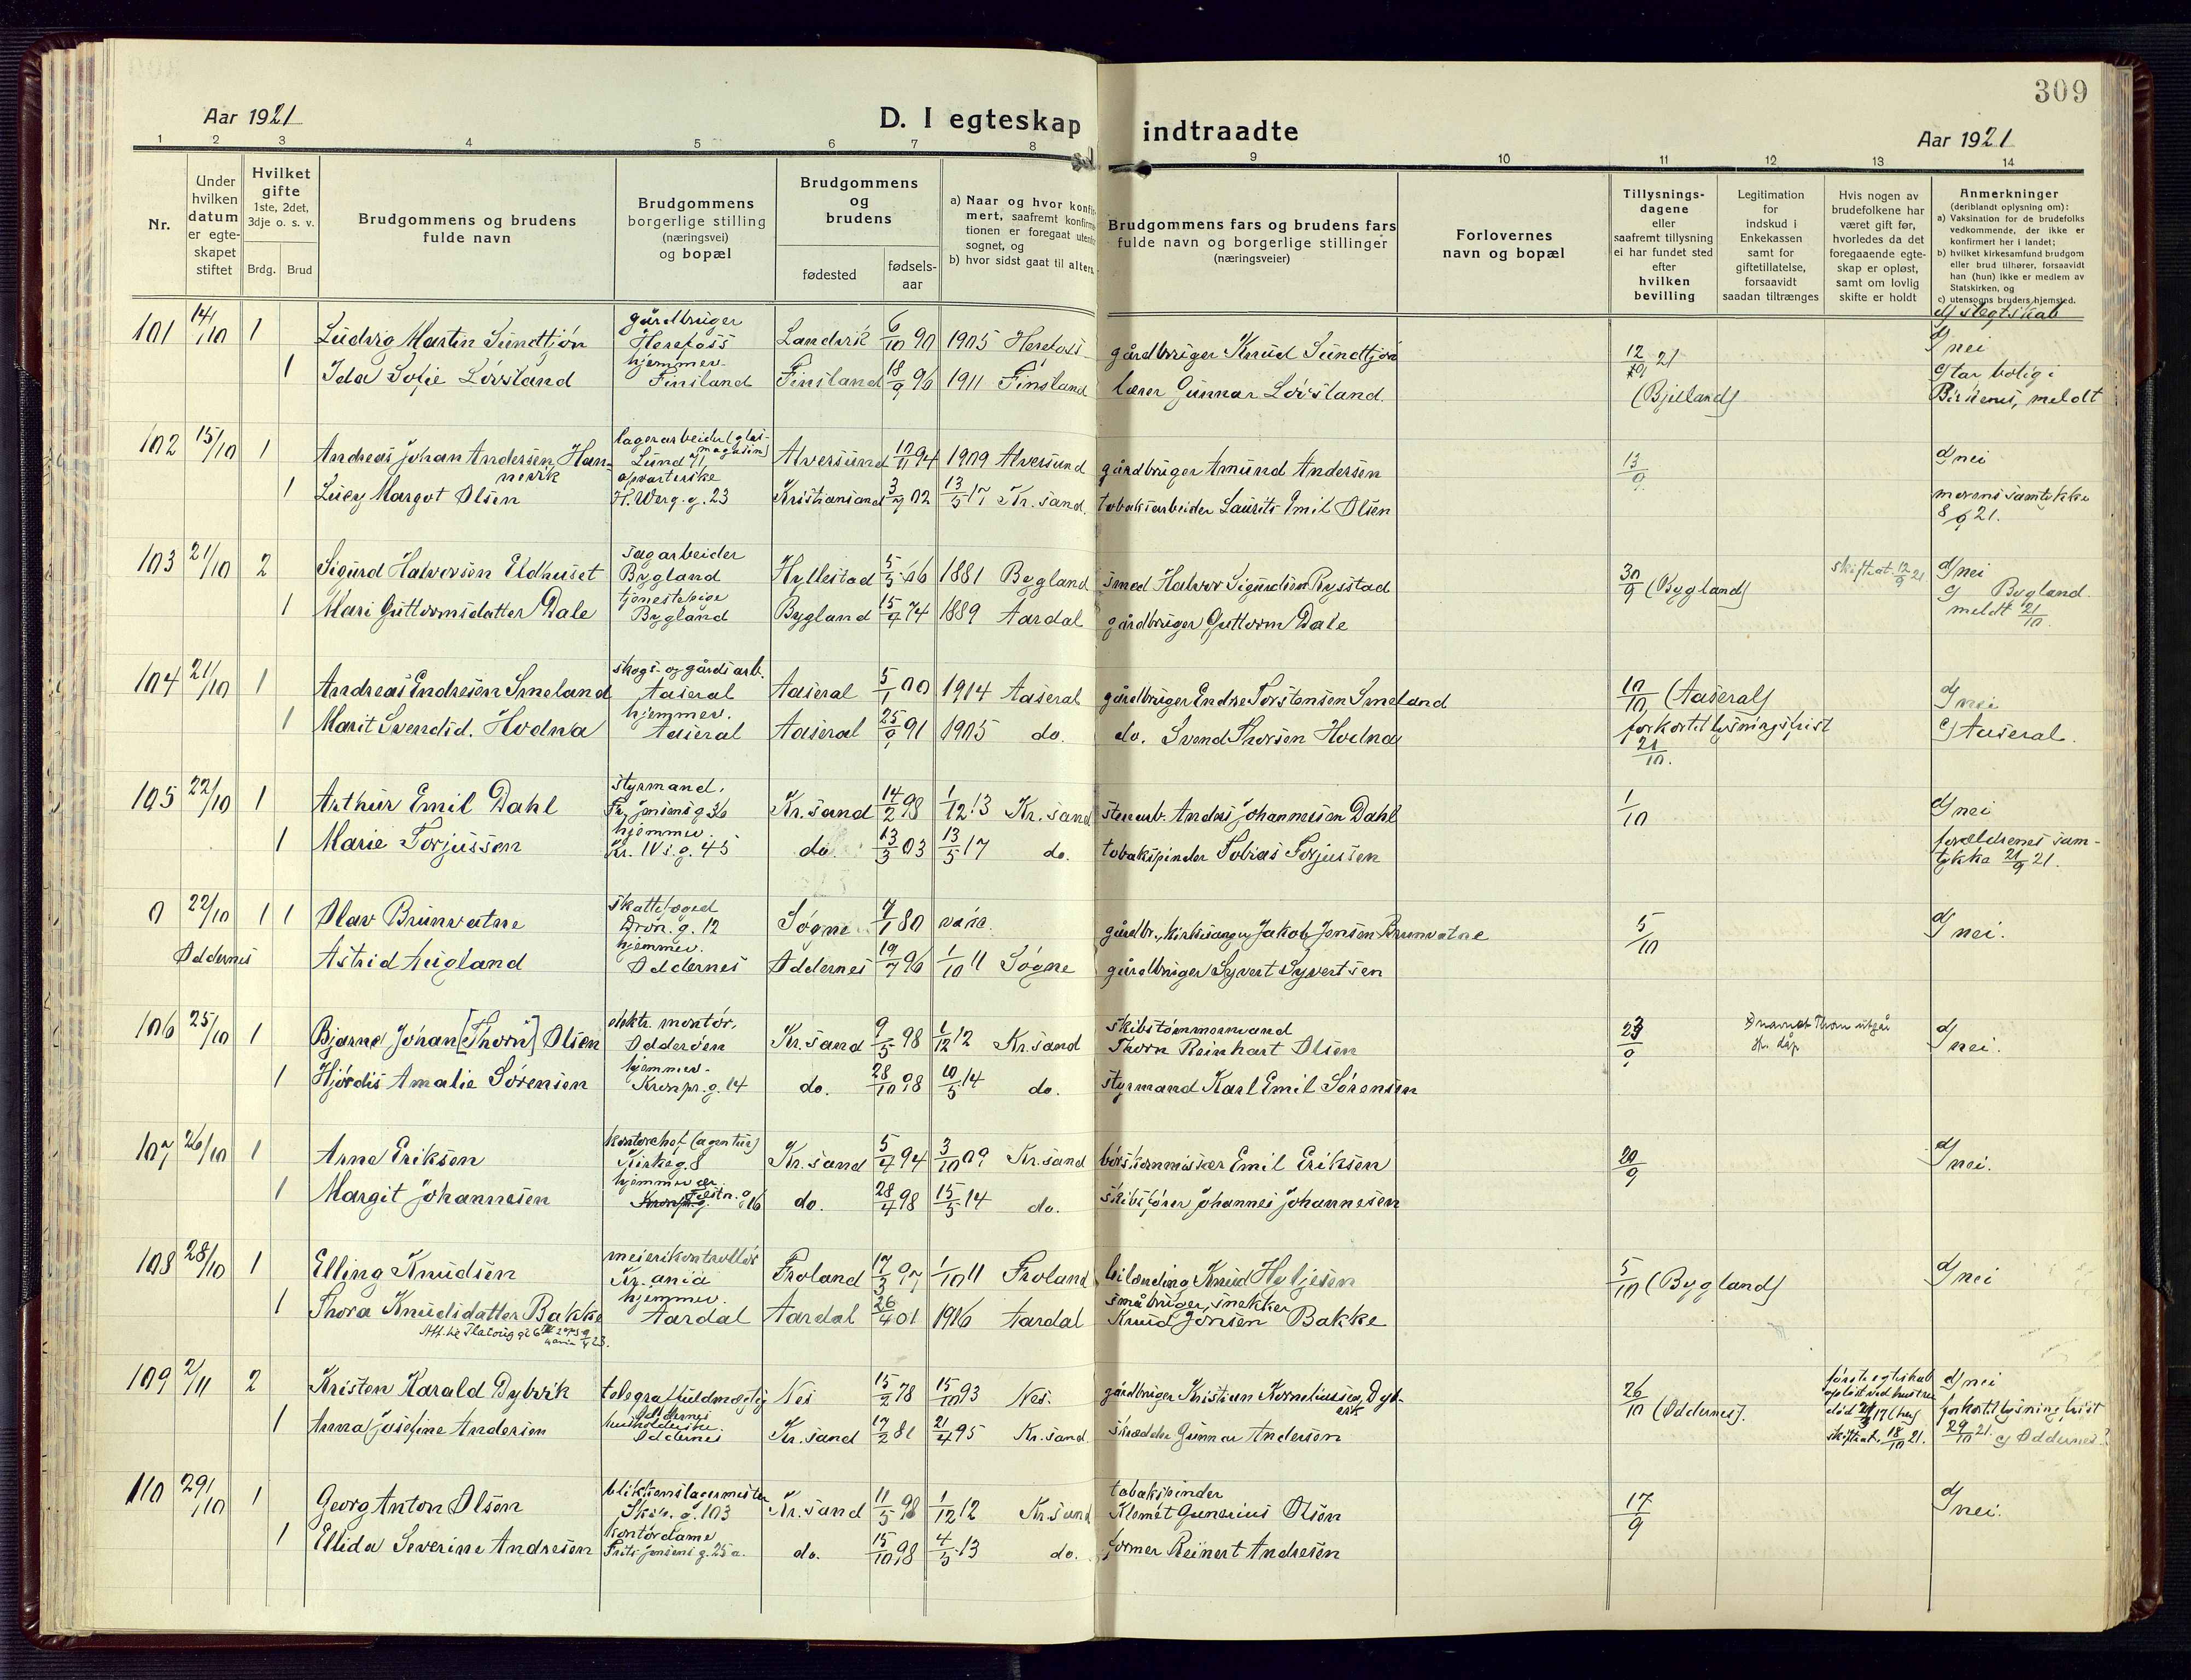 309
Aar 1921
D. I egteskap indtraadte
Aar 1921
1 2 3 4 5 6 7 8 9 10 11 12 13 14
Nr.
Under hvilken datum er egteskapet stiftet
Hvilket gifte 1ste, 2det, 3dje o. s. v.
Brdg. Brud
Brudgommens og brudens fulde navn
Brudgommens borgerlige stilling (næringsvei) og bopæl
Brudgommens og brudens
fødested
fødsels-aar
a) Naar og hvor konfirmert, saafremt konfirmationen er foregaat utenfor sognet, og
b) hvor sidst gaat til alters.
Brudgommens fars og brudens fars fulde navn og borgerlige stillinger (næringsveier)
Forlovernes navn og bopæl
Tillysningsdagene eller saafremt tillysning ei har fundet sted efter hvilken bevilling
Legitimation for indskud i Enkekassen samt for giftetillatelse, forsaavidt saadan tiltrænges
Hvis nogen av brudefolkene har været gift før, hvorledes da det foregaaende egteskap er opløst, samt om lovlig skifte er holdt
Anmerkninger
(deriblandt oplysning om):
a) Vaksination for de brudefolks vedkommende, der ikke er konfirmert her i landet;
b) hvilket kirkesamfund brudgom eller brud tilhører, forsaavidt han (hun) ikke er medlem av Statskirken, og
c) utensogns bruders hjemsted.
d) slegtskab
101 14/10 1 Ludvig Martin Sundtjøn gårdbruger Herefoss Landvik 6/10 90 1905 Herefoss gårdbruger Knud Sundtjøn 12/9 21 d) nei
1 Ida Sofie Løvsland hjemmev. Finsland Finsland 18/9 96 1911 Finsland lærer Gunnar Løvsland (Bjelland) c) tar bolig i Birkenes, meldt
102 15/10 1 Andreas Johan Andersen Hannevik lagerarbeider (glasmagasin) Lund 71 Alversund 10/11 94 1909 Alversund gårdbruger Amund Andersen 13/9 d) nei
1 Lucy Margot Olsen opvarterske H. Werg. g. 23 Kristiansand 3/7 02 13/5 17 Kr.sand tobaksarbeider Laurits Emil Olsen morens samtykke 8/9 21.
103 21/10 2 Sigurd Halvorsen Eldhuset sagarbeider Bygland Hyllestad 5/5 66 1881 Bygland smed Halvor Sigurdsen Rysstad 30/9 (Bygland) skifteat. 12/9 21. d) nei
1 Mari Guttormsdatter Dale tjenestepige Bygland Bygland 15/9 74 1889 Aardal gårdbruger Guttorm Dale c) Bygland. meldt 21/10.
104 21/10 1 Andreas Endresen Smeland skogs- og gårdsarb. Aaseral Aaseral 5/1 00 1914 Aaseral gårdbruger Endre Torstensen Smeland 10/10 (Aaseral) d) nei
1 Marit Svendsd. Hodna hjemmev. Aaseral Aaseral 25/9 91 1905 do. do. Svend Thorsen Hodna forkortet lysningsfrist 21/10. c) Aaseral.
105 22/10 1 Arthur Emil Dahl styrmand. Fr. Jensens g. 36 Kr.sand 14/2 98 1/12 13 Kr.sand stenarb. Andres Johannesen Dahl 1/10 d) nei
1 Marie Torjussen hjemmev. Kr. IVs g. 45 do. 13/3 03 13/5 17 do. tobakspinder Tobias Torjussen forældrenes samtykke 21/9 21.
0 22/10 1 1 Olav Brunvatne skattefoged Dron. g. 12 Søgne 7/1 80 gårdbr., kirkesanger Jakob Jensen Brunvatne 5/10 d) nei.
Oddernes Astrid Augland hjemmev. Oddernes Oddernes 19/7 96 1/10 11 Søgne gårdbruger Syvert Syvertsen
106 25/10 1 Bjarne Johan [Thorn] Olsen elektr. montør. Odderøen Kr.sand 9/5 98 1/12 12 Kr.sand skibstømmermand Thorn Reinhart Olsen 23/9 navnet Thorn utgår d) nei.
1 Hjørdis Amalie Sørensen hjemmev. Kronpr. g. 14 do. 28/10 98 10/5 14 do. styrmand Karl Emil Sørensen
107 26/10 1 Arne Eriksen kontorchef (agentur) Kirkeg. 8 Kr.sand 5/4 94 3/10 09 Kr.sand børskommissær Emil Eriksen 20/9 d) nei.
1 Margit Johannesen hjemmev. Festn. g. 16 do. 28/4 98 15/5 14 do. skibsfører Johannes Johannesen
108 28/10 1 Elling Knudsen meierikontrollør Kr.ania Froland 17/3 97 1/10 11 Froland Knud Heljesen 5/10 (Bygland) d) nei
1 Thora Knudsdatter Bakke hjemmev. Aardal Aardal 26/4 01 1916 Aardal småbruger, snekker Knud Jonsen Bakke
109 2/11 2 Kristen Harald Dybvik telegraffuldmægtig Oddernes Nes 15/2 78 15/10 93 Nes. gårdbruger Kristian Korneliussen Dybvik 26/10 (Oddernes). første egteskab opløst ved hustrus død 17 (her) skifteat. 18/10 21. d) nei
1 Anna Josefine Andersen husholderske Oddernes Kr.sand 17/2 81 21/4 95 Kr.sand. skrædder Gunnar Andersen forkortet lysningsfrist 29/10 21. c) Oddernes
110 29/10 1 Georg Anton Olsen blikkenslagermester Skip. g. 103 Kr.sand 11/5 98 1/12 12 Kr.sand tobakspinder Klemet Gunerius Olsen 17/9 d) nei.
1 Ellida Severine Andresen kontordame Frits Jensens g. 25a. do. 15/10 98 4/5 13 do. former Reinert Andresen